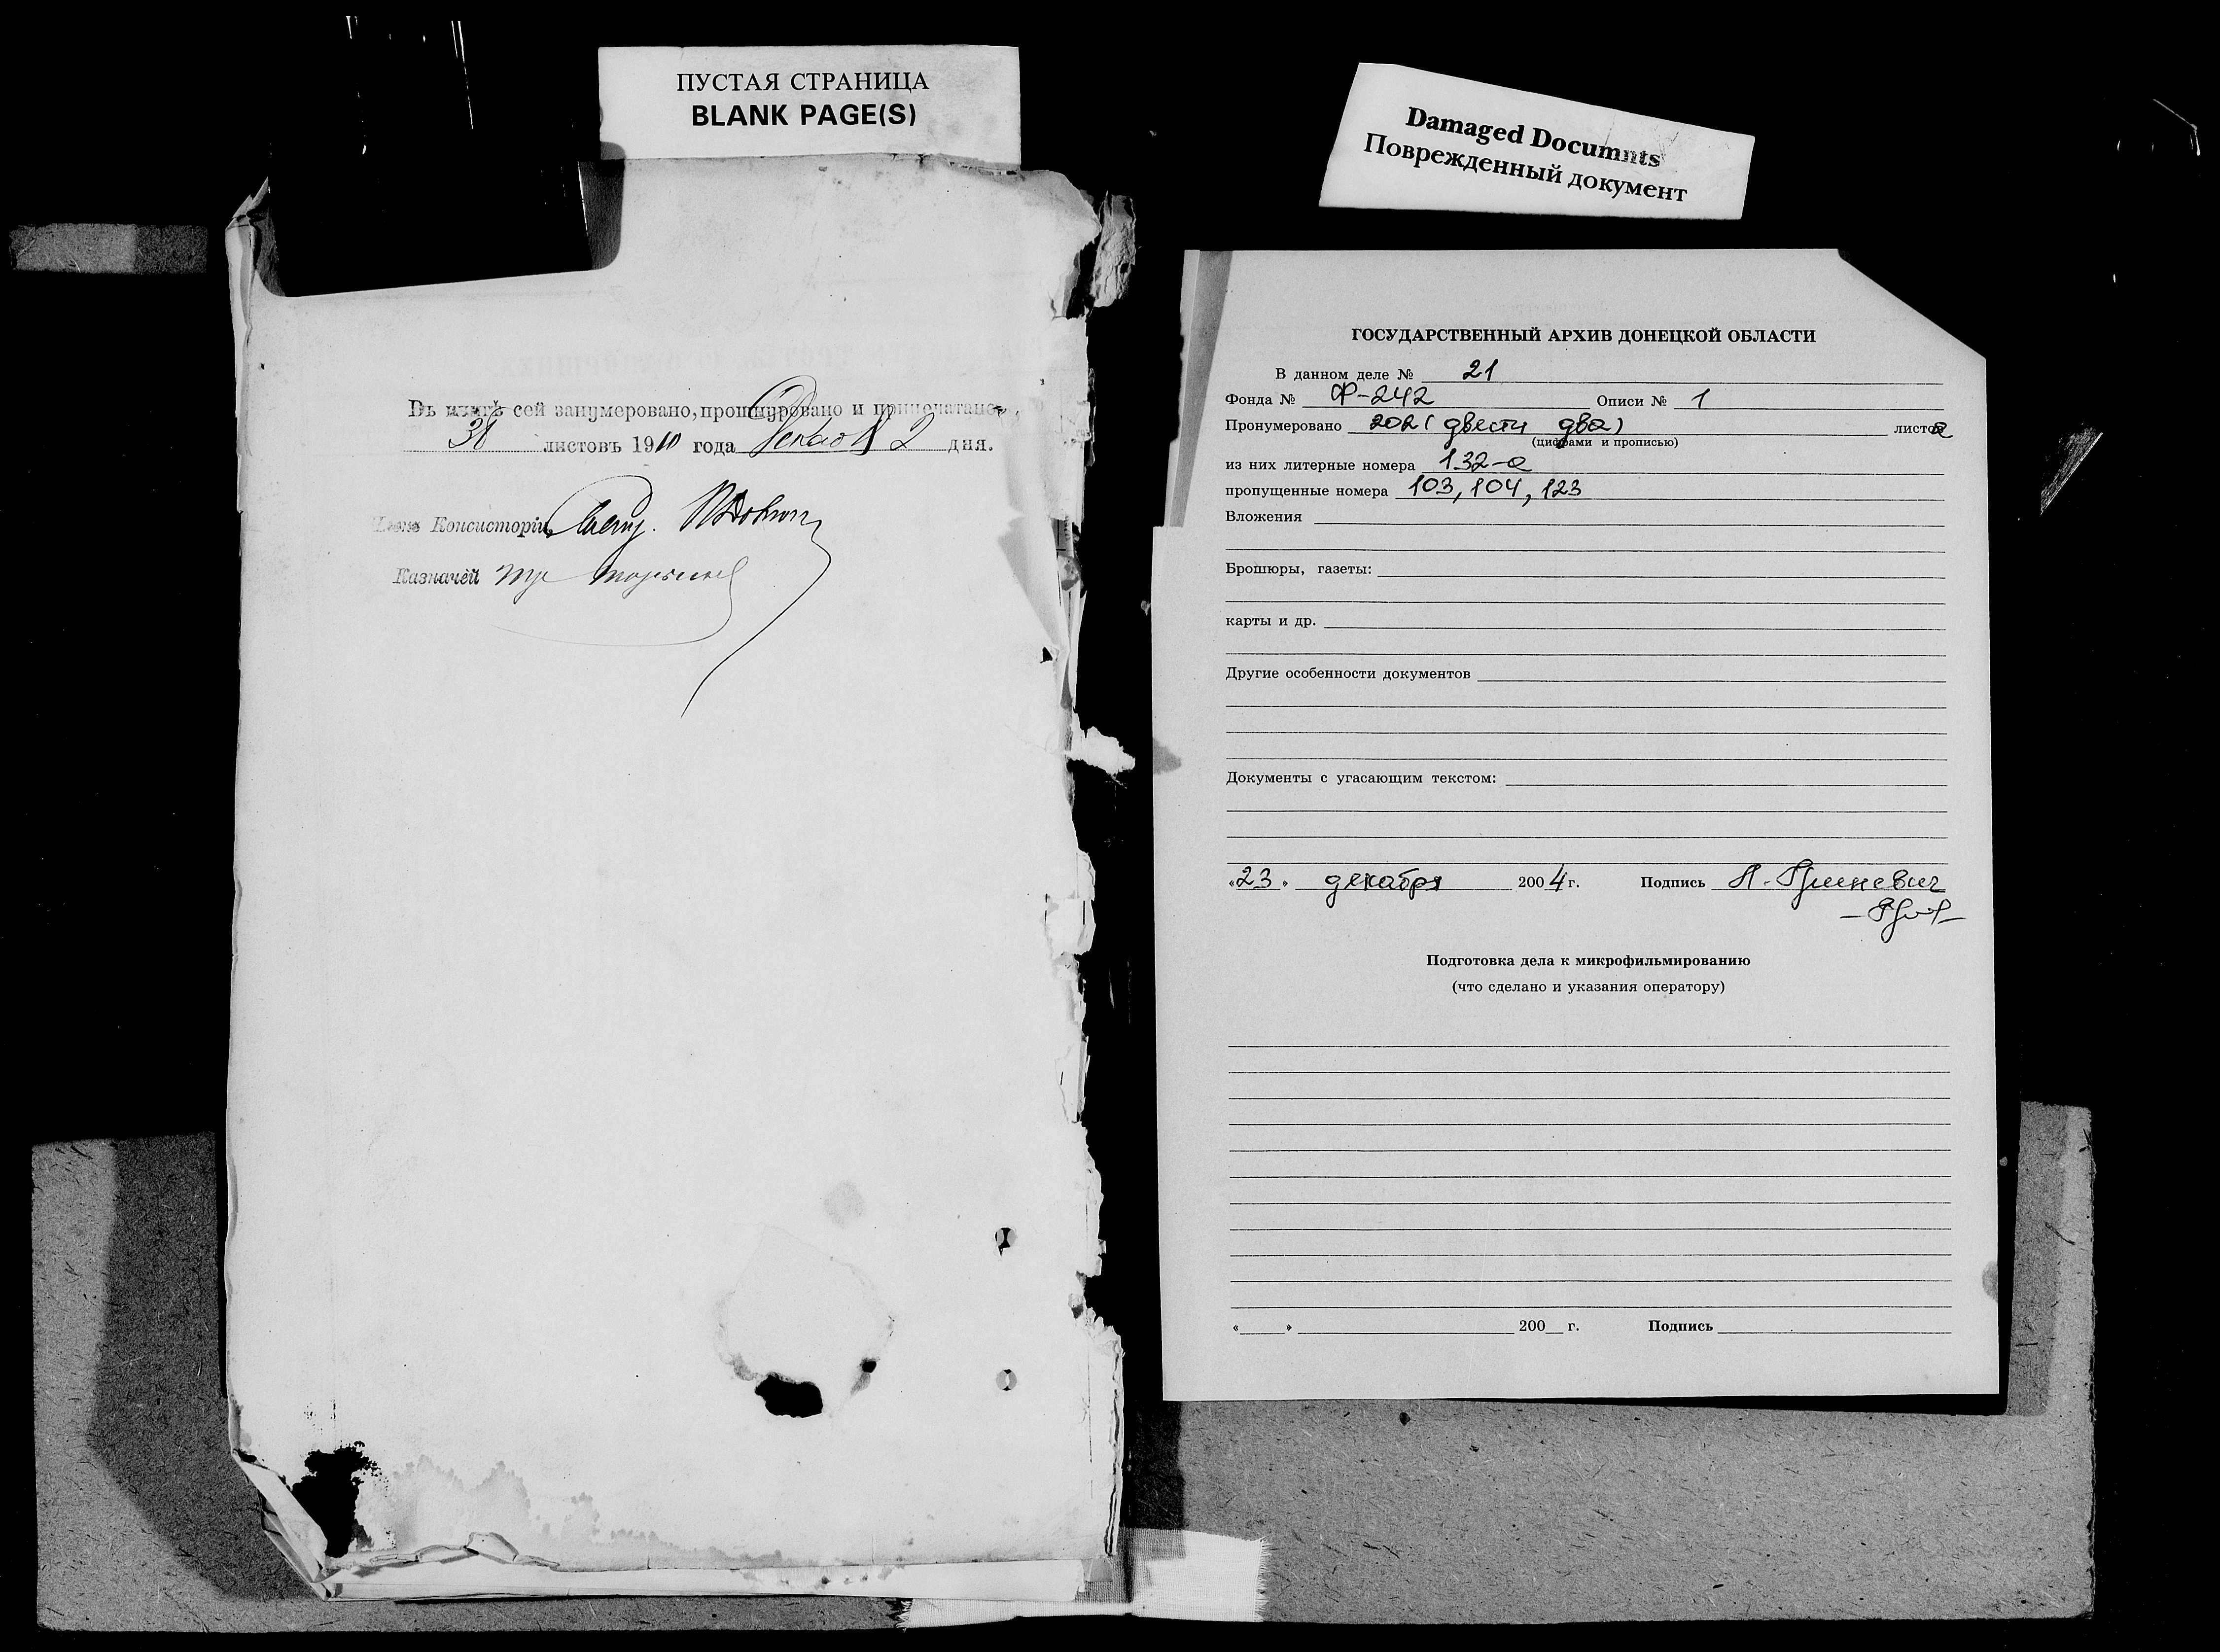 ПУСТАЯ СТРАНИЦА
BLANK PAGE(S)
Въ книгѣ сей занумеровано, прошнуровано и припечатано
листовъ 1910 года 2 дня.
Консисторіи
Казначей
Damaged Documnts
Поврежденный документ
ГОСУДАРСТВЕННЫЙ АРХИВ ДОНЕЦКОЙ ОБЛАСТИ
В данном деле № 21
Фонда № Ф-242 Описи № 1
Пронумеровано 202 (двести два) листа
(цифрами и прописью)
из них литерные номера 132-а
пропущенные номера 103, 104, 123
Вложения
Брошюры, газеты:
карты и др.
Другие особенности документов
Документы с угасающим текстом:
«23» декабря 2004 г. Подпись
Подготовка дела к микрофильмированию
(что сделано и указания оператору)
« » 200 г. Подпись